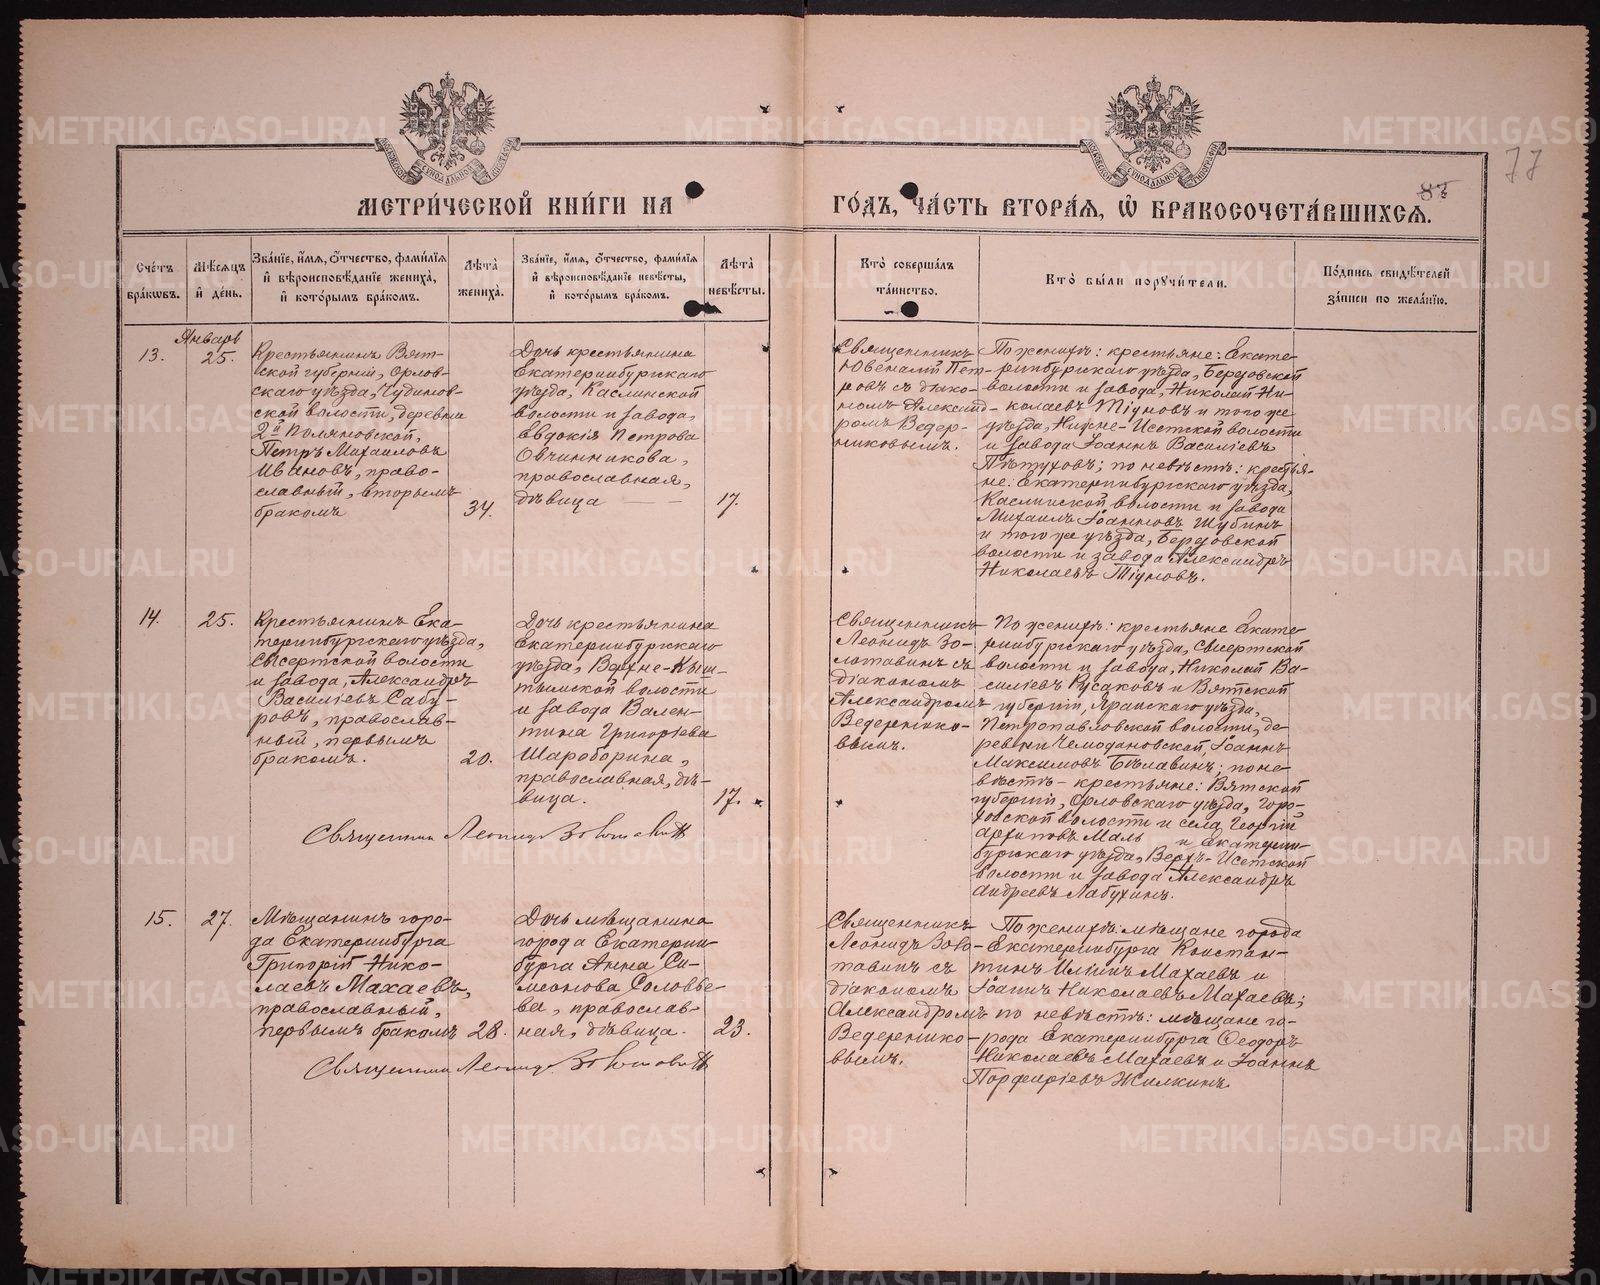 МЕТРИ́ЧЕСКОЙ КНИ́ГИ НА
ГО́ДЪ, ЧА́СТЬ ВТОРА́Я, Ѡ҆ БРАКОСОЧЕТА́ВШИХСЯ.
77
Сче́тъ бра́кѡвъ.
Мѣ́сяцъ и҆ де́нь.
Зва́нїе, и҆́мя, ѻ҆́тчество, фами́лїя и҆ вѣроисповѣ́данїе жениха̀, и҆ кото́рымъ бра́комъ.
Лѣ́та жениха̀.
Зва́нїе, и҆́мя, ѻ҆́тчество, фами́лїя и҆ вѣроисповѣ́данїе невѣ́сты, и҆ кото́рымъ бра́комъ.
Лѣ́та невѣ́сты.
Кто̀ соверша́лъ та́инство.
Кто̀ бы́ли порꙋчи́тели.
По́дпись свидѣ́телей за́писи по жела́нїю.
Январь
13.
25.
Крестьянинъ Вят-
ской губерніи, Орлов-
скаго уѣзда, Чудинов-
ской волости, деревни
2й Поляновской,
Петръ Михаиловъ
Ивановъ, право-
славный, вторымъ
бракомъ
34.
Дочь крестьянина
Екатеринбургскаго
уѣзда, Каслинской
волости и завода,
Евдокія Петрова
Овчинникова,
православная,
дѣвица
17.
Священникъ
Ювеналій Пет-
ровъ съ діако-
номъ Александ-
ромъ Ведер-
никовымъ.
По женихѣ: крестьяне: Екате-
ринбургскаго уѣзда, Березовской
волости и завода, Николай Ни-
колаевъ Тіуновъ и того же
уѣзда, Нижне-Исетской волости
и завода Іоаннъ Василіевъ
Пѣтуховъ; по невѣстѣ: крестья-
не: Екатеринбургскаго уѣзда,
Каслинской волости и завода
Михаилъ Іоанновъ Шубинъ
и того же уѣзда, Березовской
волости и завода Александръ
Николаевъ Тіуновъ.
14.
25.
Крестьянинъ Ека-
теринбургскаго уѣзда,
Сысертской волости
и завода, Александръ
Василіевъ Сабу-
ровъ, православ-
ный, первымъ
бракомъ.
20.
Дочь крестьянина
Екатеринбургскаго
уѣзда, Верхне-Кыш-
тымской волости
и завода Вален-
тина Григоріева
Шароборина,
православная, дѣ-
вица.
17.
Священникъ
Леонидъ Зо-
лотавинъ съ
діакономъ
Александромъ
Ведернико-
вымъ.
По женихѣ: крестьяне Екате-
ринбургскаго уѣзда, Сысертской
волости и завода, Николай Ва-
силіевъ Русаковъ и Вятской
губерніи, Яранскаго уѣзда,
Петропавловской волости, де-
ревни Чемодановской, Іоаннъ
Максимовъ Бѣлавинъ; по не-
вѣстѣ - крестьяне: Вятской
губерніи, Орловскаго уѣзда,
волости и села Георгій
Архиповъ Маль и Екатерин-
бургскаго уѣзда, Верхъ-Исетской
волости и завода Александръ
Андреевъ Лабухинъ.
Священникъ Леонидъ Золотавинъ
15.
27.
Мѣщанинъ горо-
да Екатеринбурга
Григорій Нико-
лаевъ Махаевъ,
православный,
первымъ бракомъ
28.
Дочь мѣщанина
города Екатерин-
бурга Анна Си-
меонова Соловье-
ва, православ-
ная, дѣвица.
23.
Священникъ
Леонидъ Золо-
тавинъ съ
діакономъ
Александромъ
Ведернико-
вымъ.
По женихѣ: мѣщане города
Екатеринбурга Констан-
тинъ Иліинъ Махаевъ и
Іоаннъ Николаевъ Махаевъ;
по невѣстѣ: мѣщане го-
рода Екатеринбурга Ѳеодоръ
Николаевъ Махаевъ и Іоаннъ
Порфиріевъ Жилкинъ
Священникъ Леонидъ Золотавинъ
METRIKI.GASO-URAL.RU